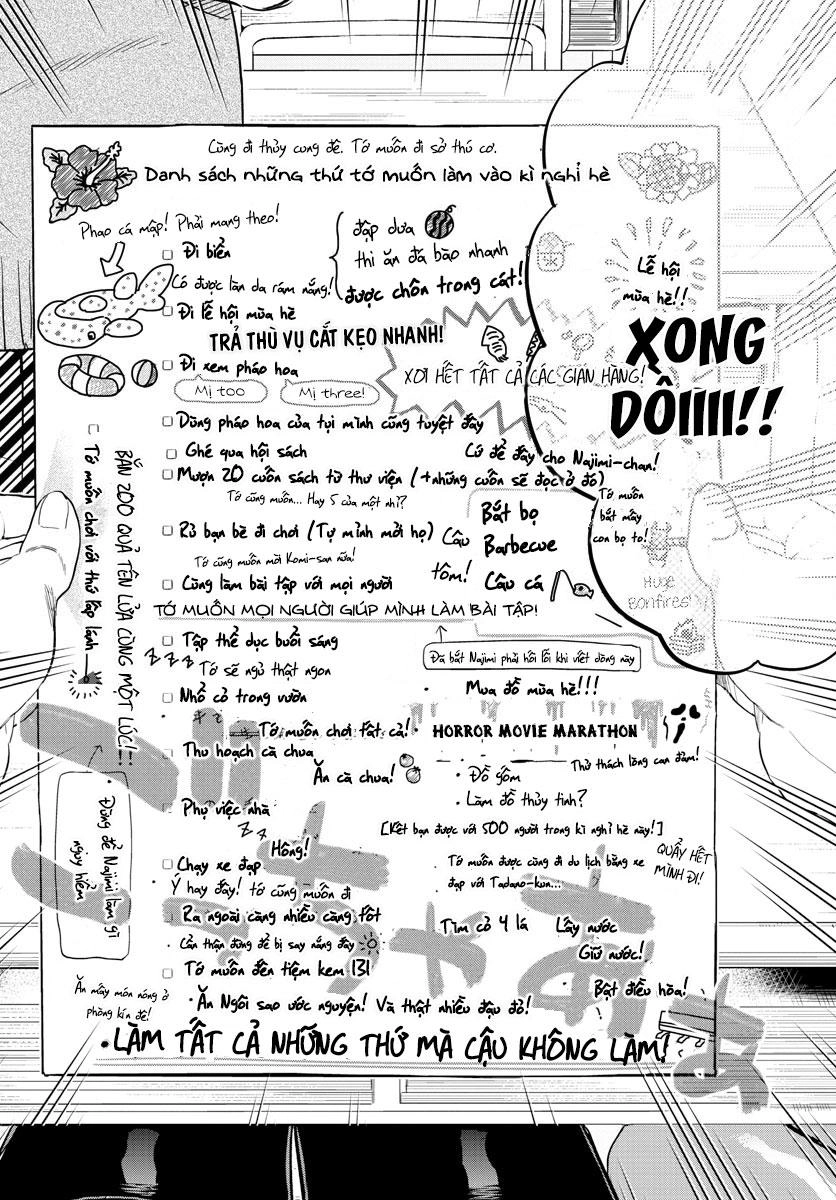 Cùng đi thủy cung đê. Tớ muốn đi sở thú cơ.
Danh sách những thứ tớ muốn làm vào kì nghỉ hè
Phao cá mập! Phải mang theo!
Đi biển
đập dưa
thi ăn đá bào nhanh
được chôn trong cát!
Có được làn da rám nắng!
Đi lễ hội mùa hè
TRẢ THÙ VỤ CẮT KẸO NHANH!
Lễ hội
mùa hè!!
XƠI HẾT TẤT CẢ CÁC GIAN HÀNG!
XONG
DỒIIII!!
Đi xem pháo hoa
Mị too
Mị three!
Dùng pháo hoa của tụi mình cũng tuyệt đấy
Ghé qua hội sách
Cứ để đấy cho Najimi-chan!
Mượn 20 cuốn sách từ thư viện (+những cuốn sẽ đọc ở đó)
Tớ cũng muốn... Hay 5 của một nhỉ?
Rủ bạn bè đi chơi (Tự mình mời họ)
Tớ cũng muốn mời Komi-san nữa!
Câu
tôm!
Bắt bọ
Barbecue
Câu cá
Tớ muốn
bắt mấy
con bọ to!
Huge
Bonfires!
Cùng làm bài tập với mọi người
TỚ MUỐN MỌI NGƯỜI GIÚP MÌNH LÀM BÀI TẬP!
Đã bắt Najimi phải hối lỗi khi viết dòng này
Tập thể dục buổi sáng
z z z
Tớ sẽ ngủ thật ngon
Mua đồ mùa hè!!!
Nhổ cỏ trong vườn
Tớ muốn chơi tất cả!
HORROR MOVIE MARATHON
Thử thách lòng can đảm!
Thu hoạch cà chua
Ăn cà chua!
Đồ gốm
Làm đồ thủy tinh?
Phụ việc nhà
z z
Hông!
[Kết bạn được với 500 người trong kì nghỉ hè này!]
QUẨY HẾT
MÌNH ĐI!
Chạy xe đạp
Ý hay đấy! tớ cũng muốn đi
Tớ muốn được cùng đi du lịch bằng xe
đạp với Tadano-kun...
Ra ngoài càng nhiều càng tốt
Cẩn thận đừng để bị say nắng đấy
Tìm cỏ 4 lá
Lấy nước
Giữ nước!
Bật điều hòa!
Tớ muốn đến tiệm kem 131
Ăn mấy món nóng ở
phòng kín đê!
Ăn Ngôi sao ước nguyện! Và thật nhiều đậu đỏ!
LÀM TẤT CẢ NHỮNG THỨ MÀ CẬU KHÔNG LÀM!
Tớ muốn chơi với thứ lấp lánh
BẮN 200 QUẢ TÊN LỬA CÙNG MỘT LÚC!
Đừng để Najimi làm gì
nguy hiểm